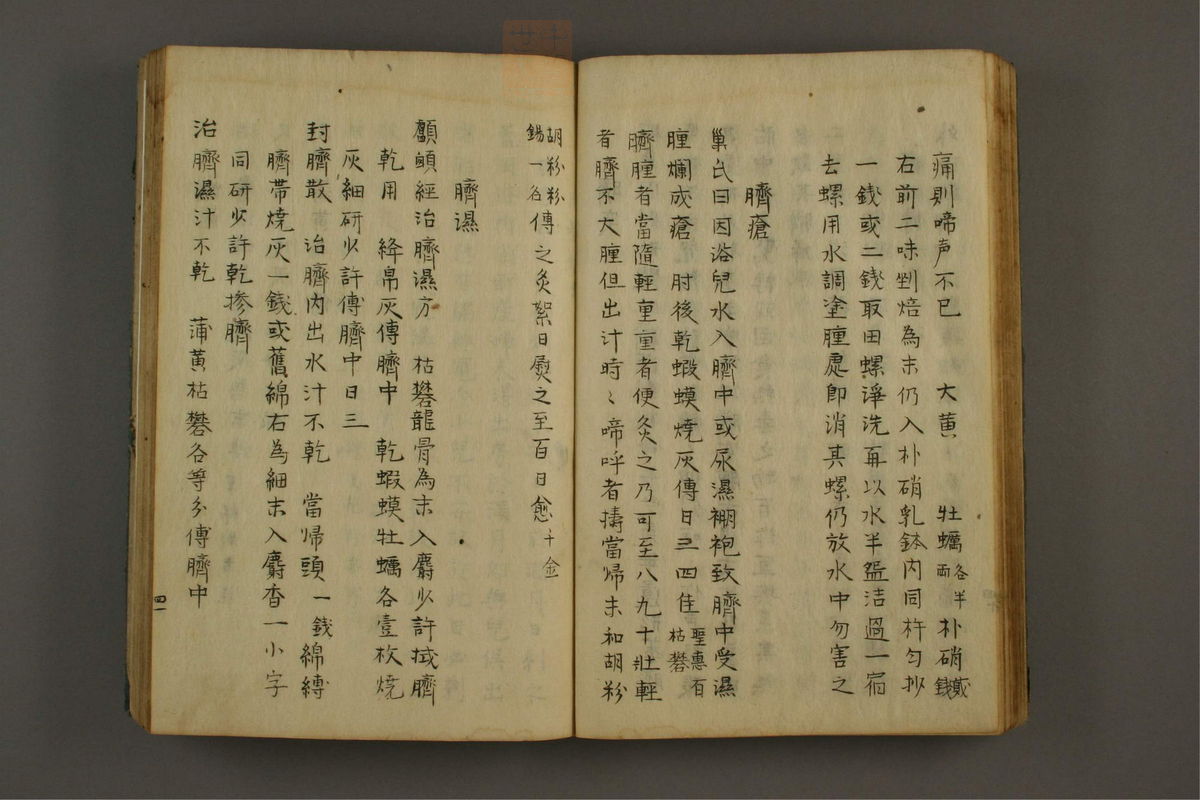 痛則啼声不已　大黄　牡蠣各半両朴硝弐銭
右前二味剉焙為末仍入朴硝乳鉢内同杵匀抄
一銭或二銭取田螺浄洗再以水半盌洁過一宿
去螺用水調塗腫處即消其螺仍放水中勿害之
臍瘡
巣氏曰因浴兒水入臍中或尿濕裯袍致臍中受濕
腫爛成瘡　肘後乾蝦蟆燒灰傅日三四佳聖惠百枯礬
臍腫者當隨輕重重者便灸之乃可至八九十壯輕
者臍不大腫但出汁時々啼呼者擣當帰末和胡粉
胡粉粉錫一名傅之灸絮日熨之至百日愈千金
臍濕
顱顖經治臍濕方　枯礬龍骨為末入麝少許拭臍
乾用　絳帛灰傅臍中　乾蝦蟆牡蠣各壹枚燒
灰細研少許傅臍中日三
封臍散　治臍内出水汁不乾　當帰頭一銭綿縛
臍帯燒灰一銭或舊綿右為細末入麝香一小字
同研少許乾摻臍
治臍濕汁不乾　蒲黄枯礬各等分傅臍中
四一